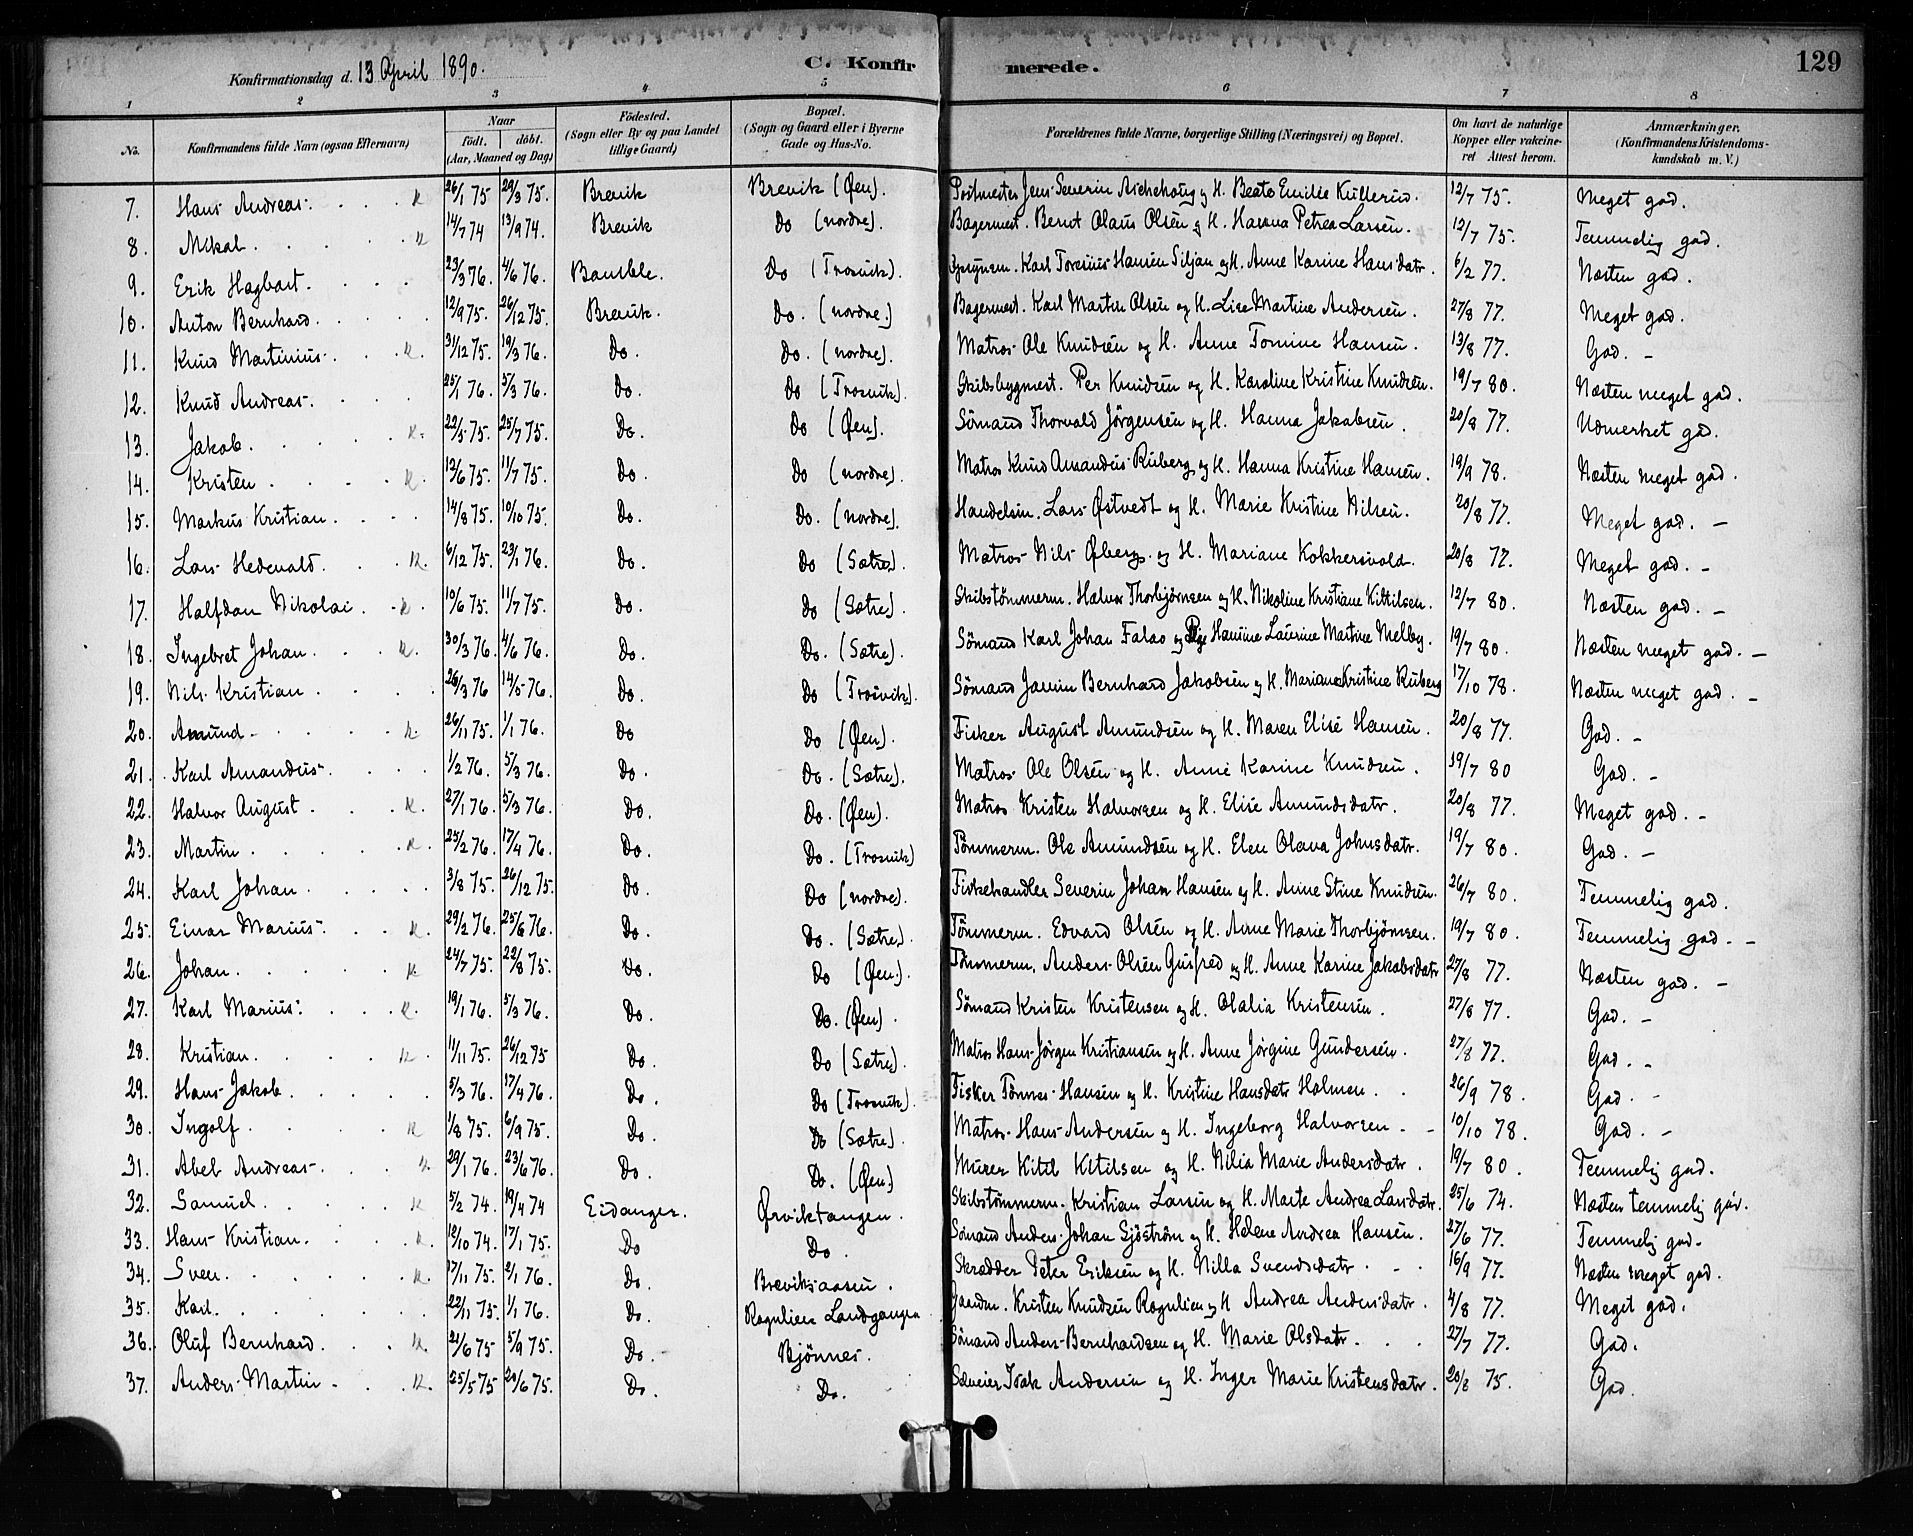 129
Konfirmationsdag d. 13 April 1890. C. Konfirmerede.
1 2 3 4 5 6 7 8
No. Konfirmandens fulde Navn (ogsaa Efternavn) Naar födt. döbt. (Aar, Maaned og Dag) Födested. (Sogn eller By og paa Landet tillige Gaard) Bopæl. (Sogn og Gaard eller i Byerne Gade og Hus-No. Forældrenes fulde Navne, borgerlige Stilling (Næringsvei) og Bopæl. Om havt de naturlige Kopper eller vakcineret Attest herom. Anmærkninger. (Konfirmandens Kristendomskundskab m. V.)
7. Hans Andreas. K 26/1 75 29/3 75. Brevik Brevik (Øen). Postmester Jens Severin Aschehoug og H. Beate Emilie Kullerud. 12/7 75. Meget god.
8. Mikal. K 14/7 74 13/9 74. Brevik Do (nordre). Bagermest. Bernt Olaus Olsen og H. Hanna Petrea Larsen. 12/7 75. Temmelig god.
9. Erik Hagbart. 23/3 76. 4/6 76. Bamble. Do (Trosvik). Karl Toresius Hansen Siljan og H. Anne Karine Hansdatr. 6/2 77. Næsten god.
10. Anton Bernhard. 12/9 75. 26/12 75. Brevik. Do. (nordre.) Bagermest. Karl Martin Olsen og H. Lise Martine Andersen. 27/8 77. Meget god.
11. Knud Martinius. K. 31/12 75. 19/3 76. Do. Do. (nordre). Matros Ole Knudsen og H. Anne Tomine Hansen. 13/8 77. God. -
12. Knud Andreas. 25/1 76. 5/3 76. Do. Do (Trosvik). Skibsbygmest. Per Knudsen og H. Karoline Kristine Knudsen. 19/7 80. Næsten meget god.
13. Jakob. K. 22/5 75. 25/7 75. Do. Do (Øen). Sömand Thorvald Jörgensen og H. Hanna Jakobsen. 20/8 77. Udmerket god.
14. Kristen. K. 13/6 75. 11/7 75. Do. Do (nordre). Matros Knud Amandus Ruberg og H. Hanna Kristine Hansen. 19/9 78. Næsten meget god.
15. Markus Kristian. 14/8 75. 10/10 75. Do. Do. (nordre). Handelsm. Lars Østvedt og H. Marie Kristine Nilsen. 20/8 77. Meget god. -
16. Lars Hedevald. K. 6/12 75. 23/1 76. Do. Do (Sætre). Matros Nils Øberg og H. Mariane Kokkersvold. 20/8 77. Meget god. -
17. Halfdan Nikolai. K. 10/6 75. 11/7 75. Do. Do (Sætre). Skibstömmerm. Halvor Thorbjörnsen og H. Nikoline Kristiane Kittilsen. 12/7 80. Næsten god. -
18. Ingebret Johan. K. 30/3 76. 4/6 76. Do. Do. (Sætre). Sömand Karl Johan Falao og Pige Hansine Laurine Martine Melby. 19/7 80. Næsten meget god. -
19. Nils Kristian. 26/3 76 14/5 76. Do. Do (Trosvik). Sömand Bernhard Jakobsen og H. Mariane Kristine Ruberg 17/10 78. Næsten meget god. -
20. Amund. K. 26/11 75. 1/1 76. Do Do (Øen). Fisker August Amundsen og H. Maren Elise Hansen. 20/8 77. God. -
21. Karl Amandus. 1/2 76. 5/3 76. Do. Do. (Sætre). Matros Ole Olsen og H. Anne Karine Knudsen. 19/7 80 God. -
22. Halvor August. K. 27/1 76. 5/3 76. Do. Do. (Øen). Matros Kristen Halvorsen og H. Elise Amundsdatr. 20/8 77. Meget god. -
23. Martin. K. 25/2 76. 17/4 76. Do. Do. (Trosvik) Tömmerm. Ole Amundsen og H. Elen Olava Johnsdatr. 19/7 80. God. -
24. Karl Johan. 3/8 75. 26/12 75. Do. Do (nordre). Fiskehandler Severin Johan Hansen og H. Anne Stine Knudsen. 26/7 80. Temmelig god.
25. Einar Marius. K. 29/2 76. 25/6 76. Do. Do. (Sætre). Tömmerm. Edvard Olsen og H. Anne Marie Thorbjörnsen. 19/7 80. Temmelig god. -
26. Johan. K 24/7 75. 22/8 75. Do. Do (Øen.). Tömmerm. Anders Olsen Gusfred og H. Anne Karine Jakobsdatr 27/8 77. Næsten god. -
27. Karl Marius. K. 19/1 76. 5/3 76. Do. Do. (Øen). Sömand Kristen Kristensen og H. Olalia Kristensen. 27/8 77. God. -
28. Kristian. K. 11/11 75. 26/12 75 Do. Do (Sætre). Matros Hans Jörgen Kristiansen og H. Anne Jörgine Gundersen. 27/8 77. God. -
29. Hans Jakob. 5/3 76. 17/4 76. Do. Do (Trosvik). Fisker Tönnes Hansen og H. Kristine Hansdatr Holmen. 26/9 78. God. -
30. Ingolf. K 1/8 75. 6/9 75. Do. Do (Sætre). Matros Hans Andersen og H. Ingeborg Halvorsen. 10/10 78. God. -
31. Abel Andreas. K. 29/1 76. 23/6 76. Do. Do. (Øen.) Murer Kitil Kitilsen og H. Nilia Marie Andersdatr. 19/7 80. Temmelig god.
32. Samuel. K 5/2 74. 19/4 74 Eidanger. Ørviktangen. Skibstömmerm. Kristian Larsen og H. Marte Andrea Larsdatr. 25/6 74. Næsten temmelig god.
33. Hans Kristian. K. 12/10 74. 17/1 75. Do Do. Sömand Anders Johan Sjöström og H. Helene Andrea Hansen. 27/6 77. Temmelig god.
34. Sven. K. 17/11 75. 2/1 76. Do. Breviksaasen. Skrædder Peter Eriksen og H. Nilla Svendsdatr. 16/9 77. Næsten meget god.
35. Karl. 22/11 75. 1/1 76. Do. Rognlien Landgangen Gaardm. Kristen Knudsen Rognlien og H Andrea Andersdatr. 4/8 77. Meget god.
36. Oluf Bernhard. K. 21/6 75 5/9 75. Do. Bjönnes. Sömand Anders Bernhardsen og H. Marie Olsdatr. 27/7 77. God.
37. Anders Martin. K. 25/5 75 20/6 75. Do. Do. Selveier Isak Andersen og H. Inger Marie Kristensdatr. 20/8 75. God.